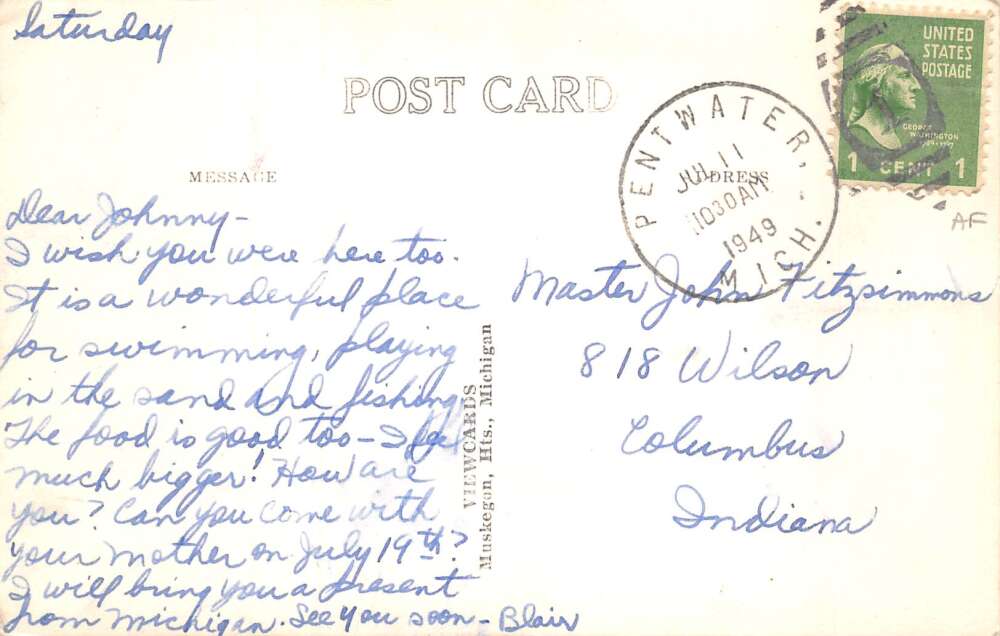 Saturday
POST CARD
MESSAGE
ADDRESS
Dear Johnny-
I wish you were here too.
It is a wonderful place
for swimming, playing
in the sand and fishing.
The food is good too - I feel
much bigger! How are
you? Can you come with
your mother on July 19th?
I will bring you a present
from Michigan. See you soon - Blair
VIEWCARDS
Muskegon, Hts., Michigan
PENTWATER,
JUL 11
1030AM
1949
MICH.
UNITED
STATES
POSTAGE
GEORGE
WASHINGTON
1 CENT 1
AF
Master John Fitzsimmons
818 Wilson
Columbus
Indiana